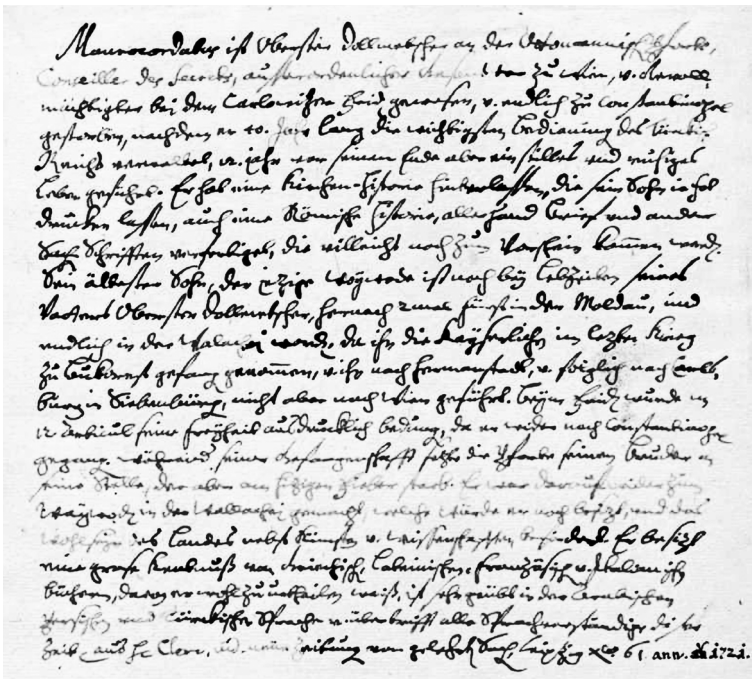 Maurocordatus ist Oberster Dollmetscher an der Ottomannisch Pforte,
Conseiller des Secrets, ausserordentlicher Gesandter zu Wien, v. Bevoll-
mächtigter bei dem Carlowizer Frid gewesen, v. endlich zu Constantinopel
gestorben, nachdem er 40. Jahr lang die wichtigsten Bedienung des Türkisch
Reichs verwaltet, 12. jahr vor seinem Ende aber ein stilles und ruhiges
Leben geführt. Er hat eine Kirchen-Historie hinterlassen, die sein Sohn hat
drucken lassen, auch eine Römische Historie, allerhand brief und andere
Schriften verfertiget, die villeicht noch zum Vorschein kommen werd.
Sein ältester Sohn, der izige Woywode ist noch bey Lebzeiten seines
Vatters Oberster Dollmetscher, hernach 2 mal Fürst in der Moldau, und
endlich in der Walachei word, da ihn die Kayserlichen im lezten Krieg
zu Bukorest gefang genommen, v. ihn nach Hermanstadt, v. folglich nach Carls-
burg in Siebenbürg, nicht aber nach Wien geführt. Beym Frid wurde im
12 Articul seine Freyheit ausdrucklich bedung, da er wider nach Constantinopel
gegang. Während seiner Gefangenschafft sezte die Pforte seinen Bruder an
seine Stelle, der aber am hizigen Fieber starb. Er war darauf wider zum
Waywod in der Wallachey gemacht, welche Würde er noch besizt, und das
Wohlseyn des Landes nebst Künsten v. Wissenschafften befördert. Er besizt
eine grose Kentnuß von Griechisch Lateinischen, Französisch v. Italiänischen
büchern, davon er wohl zu urtheilen weiß, ist sehr geübt in der Arabischen
Persischen und Türckischen Sprache v. übertrifft alle Sprachverständige diser
Zeit, aus H. Clerc, neue Zeitung von gelehrt Sach, Leipzig No. 61. ann. 1721.